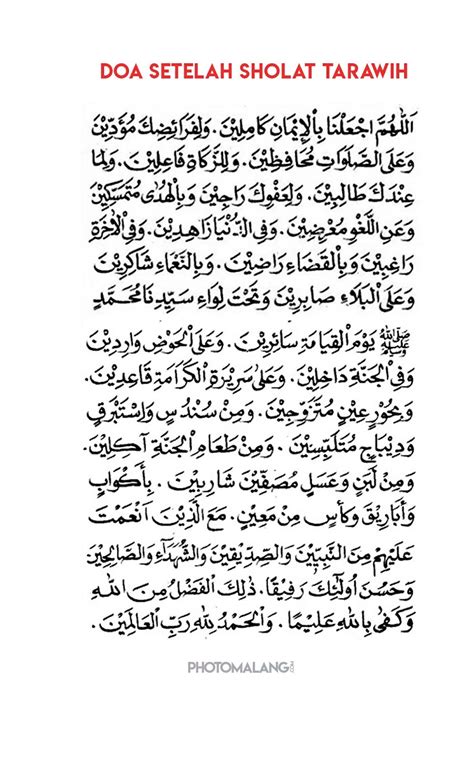 DOA SETELAH SHOLAT TARAWIH
اَللّٰهُمَّ اجْعَلْنَا بِالْإِيْمَانِ كَامِلِيْنَ. وَلِفَرَائِضِكَ مُؤَدِّيْنَ
وَعَلَى الصَّلَوَاتِ مُحَافِظِيْنَ. وَلِلزَّكَاةِ فَاعِلِيْنَ. وَلِمَا
عِنْدَكَ طَالِبِيْنَ. وَلِعَفْوِكَ رَاجِيْنَ وَبِالْهُدَى مُتَمَسِّكِيْنَ
وَعَنِ اللَّغْوِ مُعْرِضِيْنَ. وَفِى الدُّنْيَا زَاهِدِيْنَ. وَفِى الْاٰخِرَةِ
رَاغِبِيْنَ وَبِالْقَضَاءِ رَاضِيْنَ. وَبِالنَّعْمَاءِ شَاكِرِيْنَ
وَعَلَى الْبَلَاءِ صَابِرِيْنَ وَتَحْتَ لِوَاءِ سَيِّدِنَا مُحَمَّدٍ
ﷺ يَوْمَ الْقِيَامَةِ سَائِرِيْنَ. وَعَلَى الْحَوْضِ وَارِدِيْنَ
وَفِى الْجَنَّةِ دَاخِلِيْنَ. وَعَلَى سَرِيْرَةِ الْكَرَامَةِ قَاعِدِيْنَ.
وَبِحُوْرٍ عِيْنٍ مُتَزَوِّجِيْنَ. وَمِنْ سُنْدُسٍ وَاِسْتَبْرَقٍ
وَدِيْبَاجٍ مُتَلَبِّسِيْنَ. وَمِنْ طَعَامِ الْجَنَّةِ آكِلِيْنَ.
وَمِنْ لَبَنٍ وَعَسَلٍ مُصَفَّيْنَ شَارِبِيْنَ. بِأَكْوَابٍ
وَأَبَارِيْقَ وَكَأْسٍ مِنْ مَعِيْنٍ. مَعَ الَّذِيْنَ اَنْعَمْتَ
عَلَيْهِمْ مِنَ النَّبِيِّيْنَ وَالصِّدِّيْقِيْنَ وَالشُّهَدَاءِ وَالصَّالِحِيْنَ
وَحَسُنَ اُولٰئِكَ رَفِيْقًا. ذٰلِكَ الْفَضْلُ مِنَ اللهِ
وَكَفٰى بِاللهِ عَلِيْمًا. وَالْحَمْدُ لِلّٰهِ رَبِّ الْعَالَمِيْنَ.
PHOTOMALANG.COM